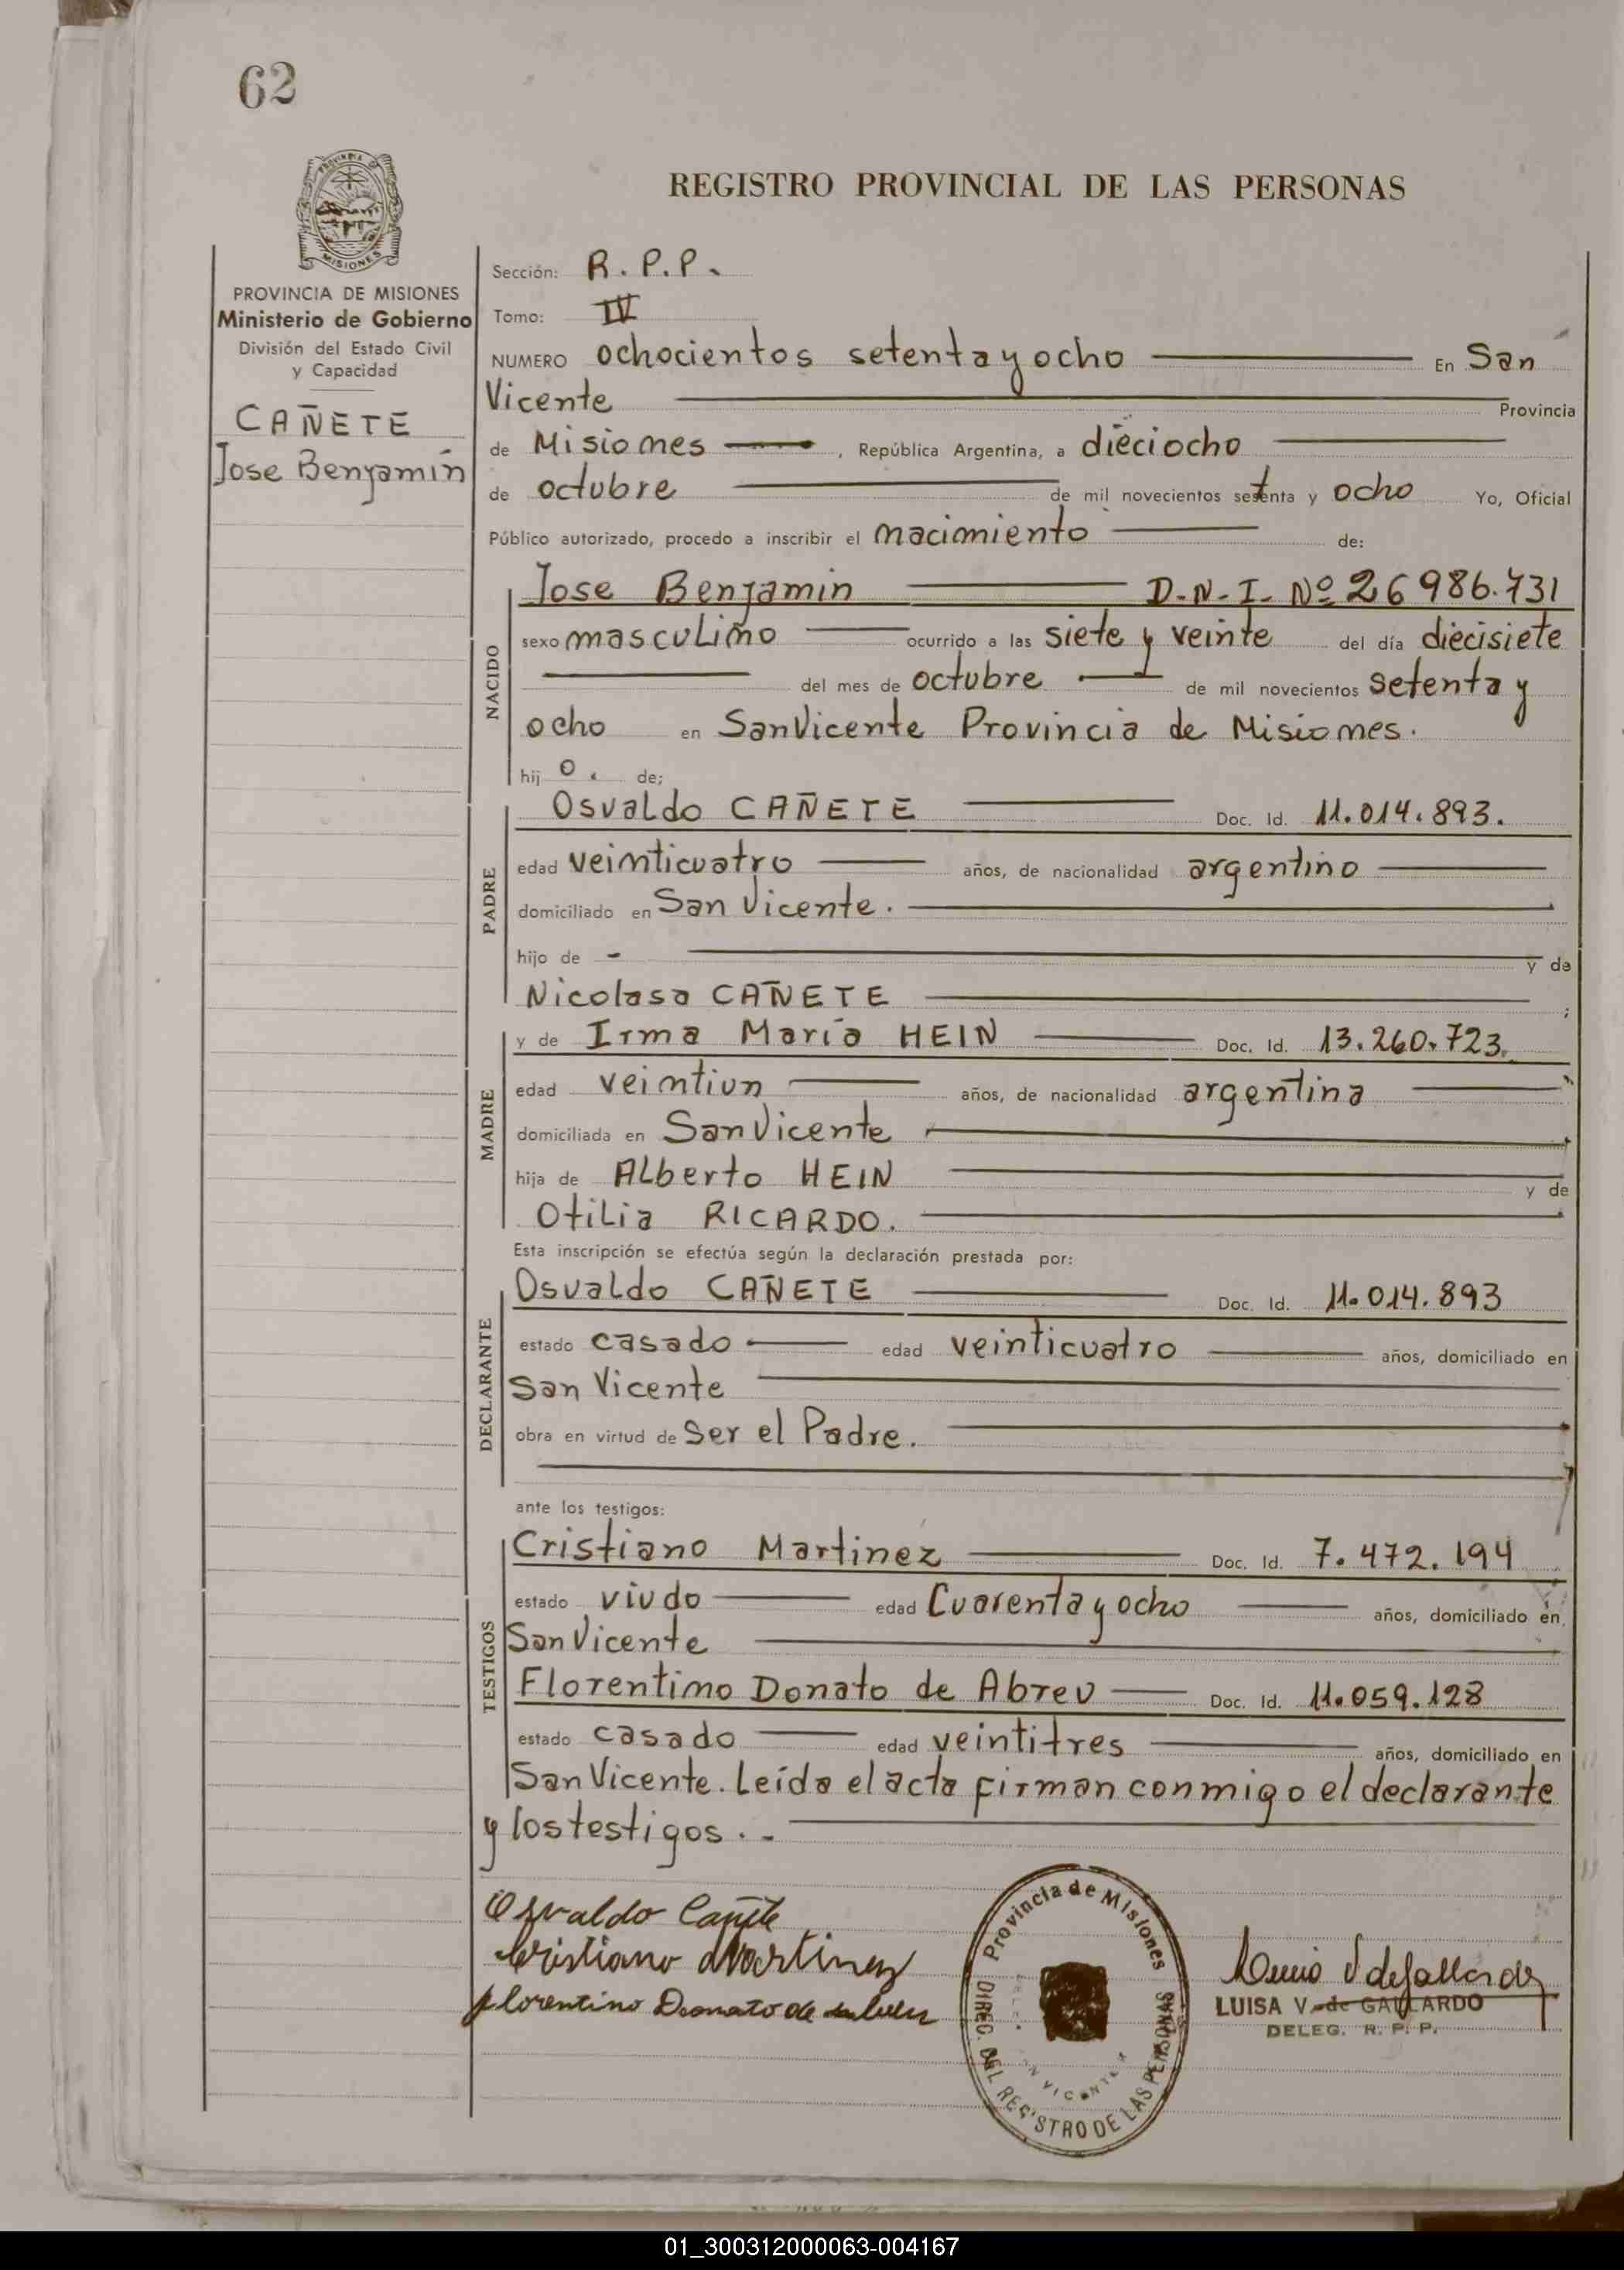 62
PROVINCIA
MISIONES
REGISTRO PROVINCIAL DE LAS PERSONAS
PROVINCIA DE MISIONES
Ministerio de Gobierno
División del Estado Civil
y Capacidad
CAÑETE
Jose Benjamín
Sección: R. P. P.
Tomo: IV
NUMERO ochocientos setenta y ocho En San
Vicente Provincia
de Misiones , República Argentina, a dieciocho
de octubre de mil novecientos setenta y ocho Yo, Oficial
Público autorizado, procedo a inscribir el nacimiento de:
NACIDO
Jose Benjamin D.N.I. Nº 26986.731
sexo masculino ocurrido a las siete y veinte del día diecisiete
del mes de octubre de mil novecientos setenta y
ocho en San Vicente Provincia de Misiones.
hij o. de;
PADRE
Osvaldo CAÑETE Doc. Id. 11.014.893.
edad veinticuatro años, de nacionalidad argentino
domiciliado en San Vicente.
hijo de - y de
Nicolasa CAÑETE ;
MADRE
y de Irma María HEIN Doc. Id. 13.260.723.
edad veintiun años, de nacionalidad argentina
domiciliada en San Vicente
hija de Alberto HEIN y de
Otilia RICARDO.
Esta inscripción se efectúa según la declaración prestada por:
DECLARANTE
Osvaldo CAÑETE Doc. Id. 11.014.893
estado casado edad veinticuatro años, domiciliado en
San Vicente
obra en virtud de Ser el Padre.
ante los testigos:
TESTIGOS
Cristiano Martinez Doc. Id. 7.472.194
estado viudo edad Cuarenta y ocho años, domiciliado en
San Vicente
Florentino Donato de Abreu Doc. Id. 11.059.128
estado casado edad veintitres años, domiciliado en
San Vicente. Leída el acta firman conmigo el declarante
y los testigos. -
Osvaldo Cañete
Cristiano Martinez
Florentino Donato de
Provincia de Misiones
DIREC. DEL REGISTRO DE LAS PERSONAS
VICENTE
LUISA V. de GALLARDO
DELEG. R. P. P.
01_300312000063-004167